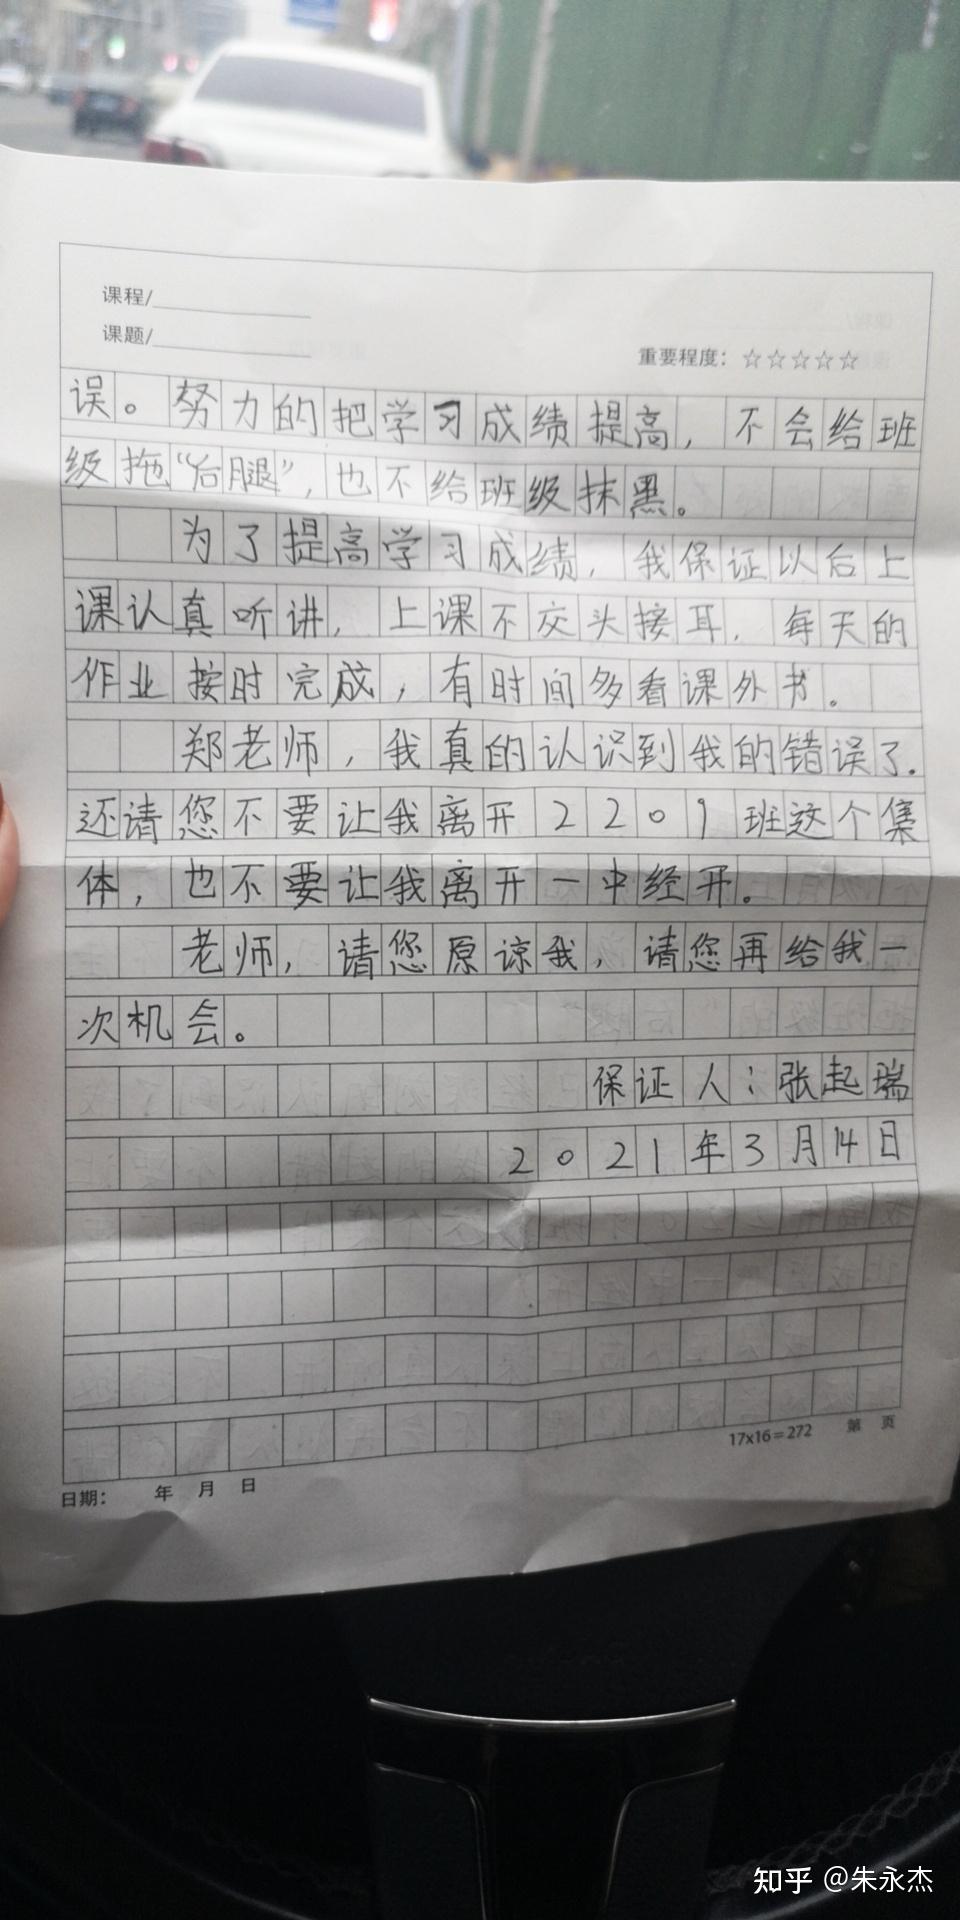 课程/
课题/
重要程度：☆☆☆☆☆
误。努力的把学习成绩提高，不会给班
级拖“后腿”，也不给班级抹黑。
为了提高学习成绩，我保证以后上
课认真听讲，上课不交头接耳，每天的
作业按时完成，有时间多看课外书。
郑老师，我真的认识到我的错误了.
还请您不要让我离开2209班这个集
体，也不要让我离开一中经开。
老师，请您原谅我，请您再给我一
次机会。
保证人：张起瑞
2021年3月14日
17x16=272 第 页
日期： 年 月 日
知乎 @朱永杰